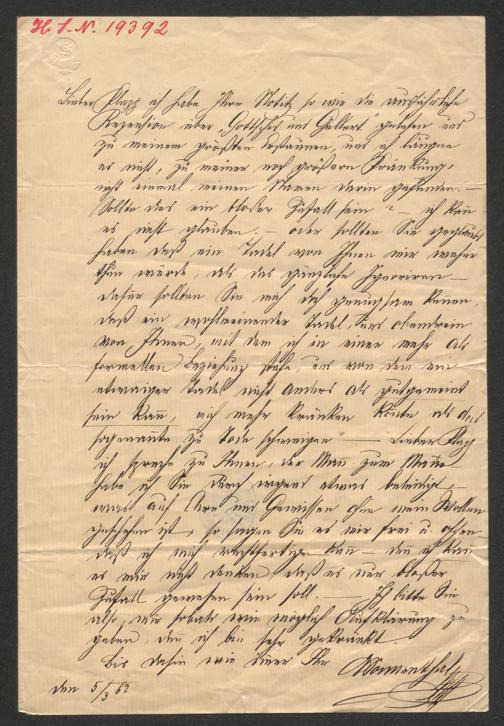 H. I. N. 19392
Lieber Klapp ich habe Ihre Notitz so wie die ausführliche
Rezension über „Gottsched und Gellert" gelesen und
zu meinem größten Erstaunen, und ich läugne
es nicht, zu meiner noch größern Kränkung,
nicht einmal meinen Namen darin gefunden. —
Sollte das ein bloßer Zufall sein? — ich kan
es nicht glauben. — oder sollten Sie geglaubt
haben daß ein Tadel von Ihnen mir weher
thun würde, als das gänzliche Ignoriren —
dafür sollten Sie mich doch genügsam kennen,
daß ein wohlmeinender Tadel, und obendrein
von Ihnen, mit dem ich in einer mehr als
formellen Beziehung stehe, und von dem ein
etwaiger Tadel nicht anders als gutgemeint
sein kan, mich mehr kränken könte als das
sogenante „zu Tode schweigen" — Lieber Klapp
ich spreche zu Ihnen, der Man zum Mane
habe ich Sie durch irgend etwas beleidigt,
was auf Ehre und Gewissen ohne mein Wollen
geschehen ist, so sagen Sie es mir frei u. offen
daß ich mich rechtfertigen kan — den ich kan
es mir nicht denken, daß es nur bloßer
Zufall gewesen sein soll. — Ich bitte Sie
also, mir sobald wie möglich Aufklärung zu
geben, den ich bin sehr gekränkt.
Bis dahin wie immer Ihr Sonnenthal
den 5/3 62